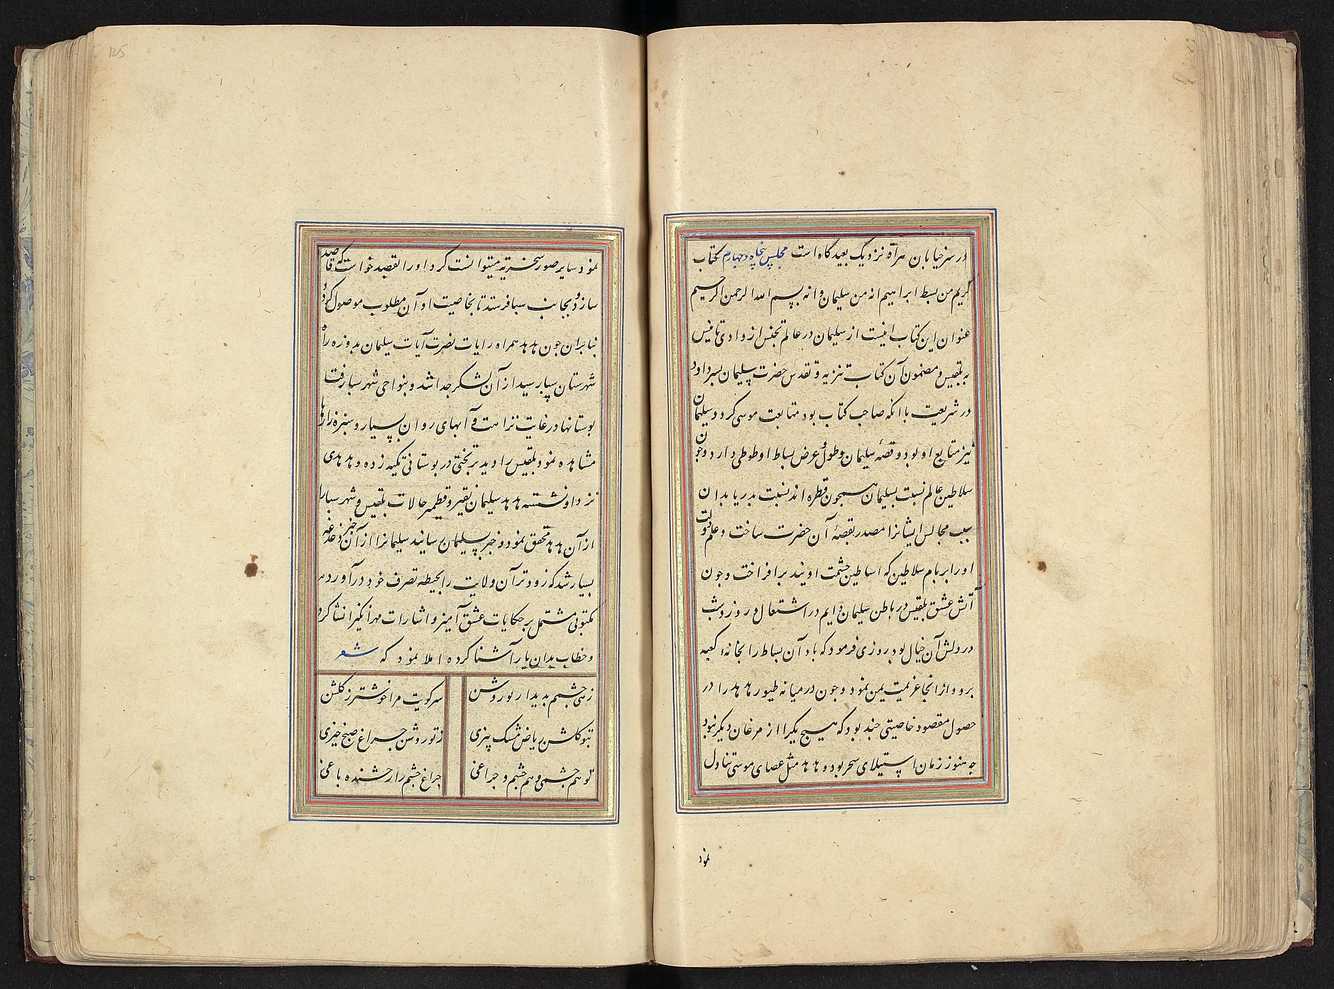 در سر خیابان هراة نزدیک بعیدگاه است مجلس پنجاه و چهارم کتاب
کریم من بسط ابراهیم انه من سلیمان وانه بسم الله الرحمن الرحیم
عنوان این کتاب اینست از سلیمان در عالم تجنس از وادی تانیس
به بلقیس و مضمون آن کتاب تنزیه و تقدس حضرت سلیمان سبر داود
در شریعت با آنکه صاحب کتاب بود متابعت موسی کردد و سلیمان
نیز متابع او بود و قصهٔ سلیمان و طول و عرض بساط او طوطی دارد و چون
سلاطین عالم نسبت بسلیمان همچون قطره اند نسبت بدریا بدان
سبب مجالس ایشانرا مصدر بقصهٔ آن حضرت ساخت و علم دولت
او را بر بام سلاطین که اساطین حشمت اویند برافراخت و چون
آتش عشق بلقیس در باطن سلیمان دایم در اشتعال و روز و شب
در دلش آن خیال بود روزی فرمود که باد آن بساط را بجانب کعبه
برد و از آنجا عزیمت یمن نمود و چون در میانه طیور هدهد را در
حصول مقصود خاصیتی چند بود که هیچ یک را از مرغان دیگر نبود
چه هنوز زمان استیلای سحر بود و هدهد مثل عصای موسی تناول
نمود
125
نمود سایر صور سحریه میتوانست کرد او را القصه خواست که قاصد
سازد و بجانب سبا فرستد تا بخاصیت او آن مطلوب موصول گردد
بنابران چون هدهد همراه رایات نصرت آیات سلیمان بدروزه راه
شهرستان سبا رسید از آن لشکر جدا شد و بنواحی شهر سبا رفت
بوستانها در غایت نزاهت و آبهای روان بسیار و سبزه زارها
مشاهده نمود بلقیس را دید بر تختی در بوستانی تکیه زده و هدهدی
نزد او نشسته هدهد سلیمان نقیر و قطمیر حالات بلقیس و شهر سبا را
از آن هدهد تحقق نمود و خبر بسلیمان رسانید سلیمانرا از آن خبر دغدغه
بسیار شد که زودتر آن ولایت را بحیطهٔ تصرف خود درآورد
مکتوبی مشتمل بر حکایات عشق آمیز و اشارات مهرانگیز انشا کرد
و خطاب بدان یار آشنا کرده املا نمود که شعر
زهی چشمم بدیدار تو روشن سر کویت مرا خوشتر ز گلشن
بتو گلشن ریاض مشک بیزی ز تو روشن چراغ صبح خیزی
تو هم چشمی و هم چشم و چراغی چراغ چشم را رخشنده باغی